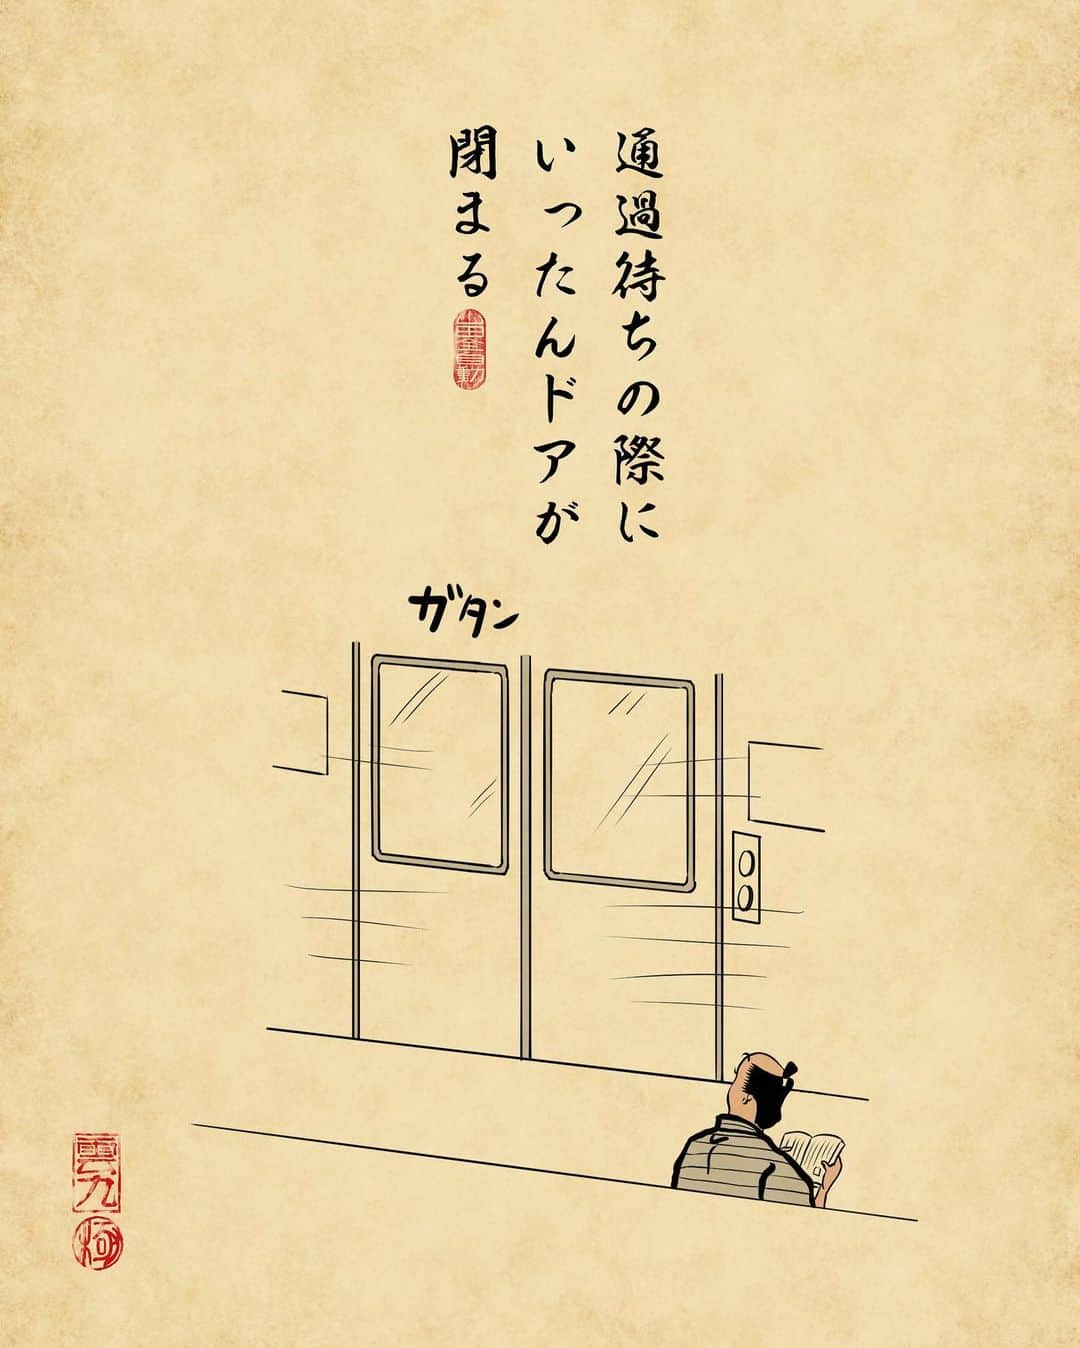 通過待ちの際に
いったんドアが
閉まる
ガタン
雲九
極